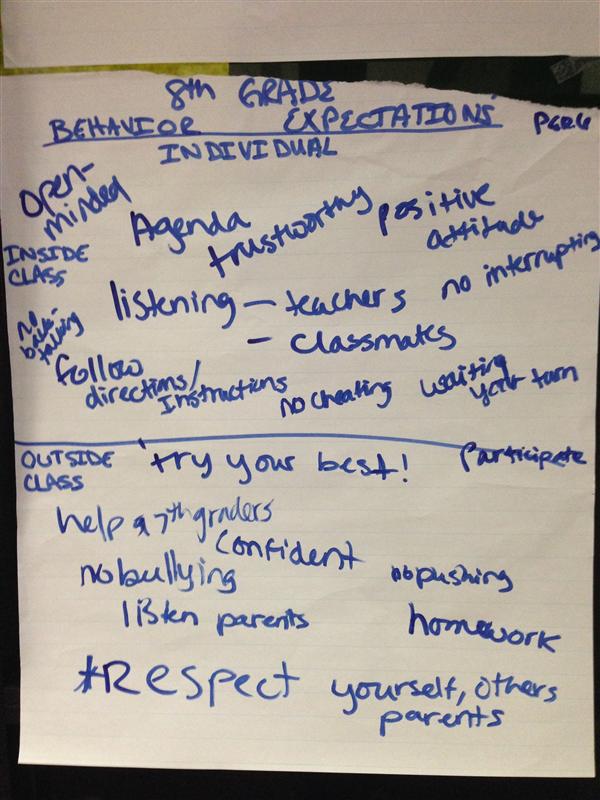 8th GRADE
BEHAVIOR EXPECTATIONS
INDIVIDUAL
open-
minded
Agenda
trustworthy
positive
attitude
INSIDE
CLASS
listening - teachers
- classmates
no interrupting
no
back-
talking
follow
directions/
Instructions
no cheating
waiting
your turn
OUTSIDE
CLASS
try your best!
Participate
help 7th graders
confident
no bullying
no pushing
listen parents
homework
*Respect yourself, others
parents